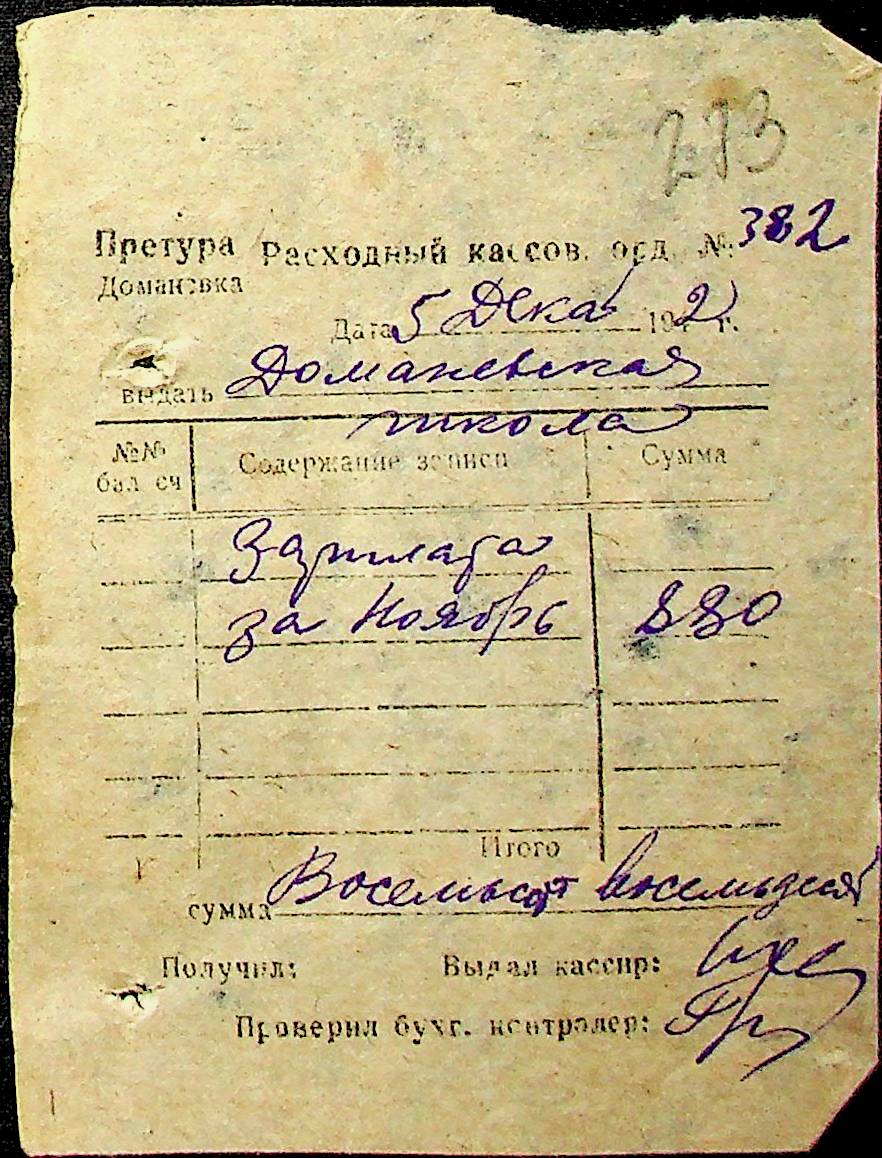 273
Претура Расходный кассов. орд. № 382
Домановка
Дата 5 Дека 194 2 г.
выдать Доманевская
школа
№№ бал сч Содержание записи Сумма
Зарплата
за Ноябрь 880
Итого
сумма Восемьсот восемьдесят
Получил: Выдал кассир:
Проверил бухг. контролер: